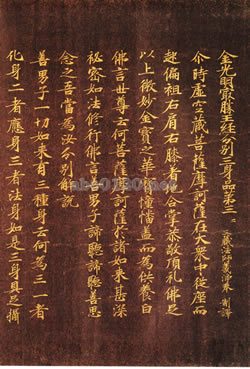 金光明最勝王經分別三身品第三 三藏法師義淨奉 制譯
尒時虛空藏菩薩摩訶薩在大衆中從座而
起偏袒右肩右膝著地合掌恭敬頂礼佛足
以上微妙金寶之華寶幢幡蓋而為供養白
佛言世尊云何菩薩摩訶薩於諸如來甚深
祕密如法修行佛言善男子諦聽諦聽善思
念之吾當為汝分別解說
善男子一切如來有三種身云何為三一者
化身二者應身三者法身如是三身具足攝